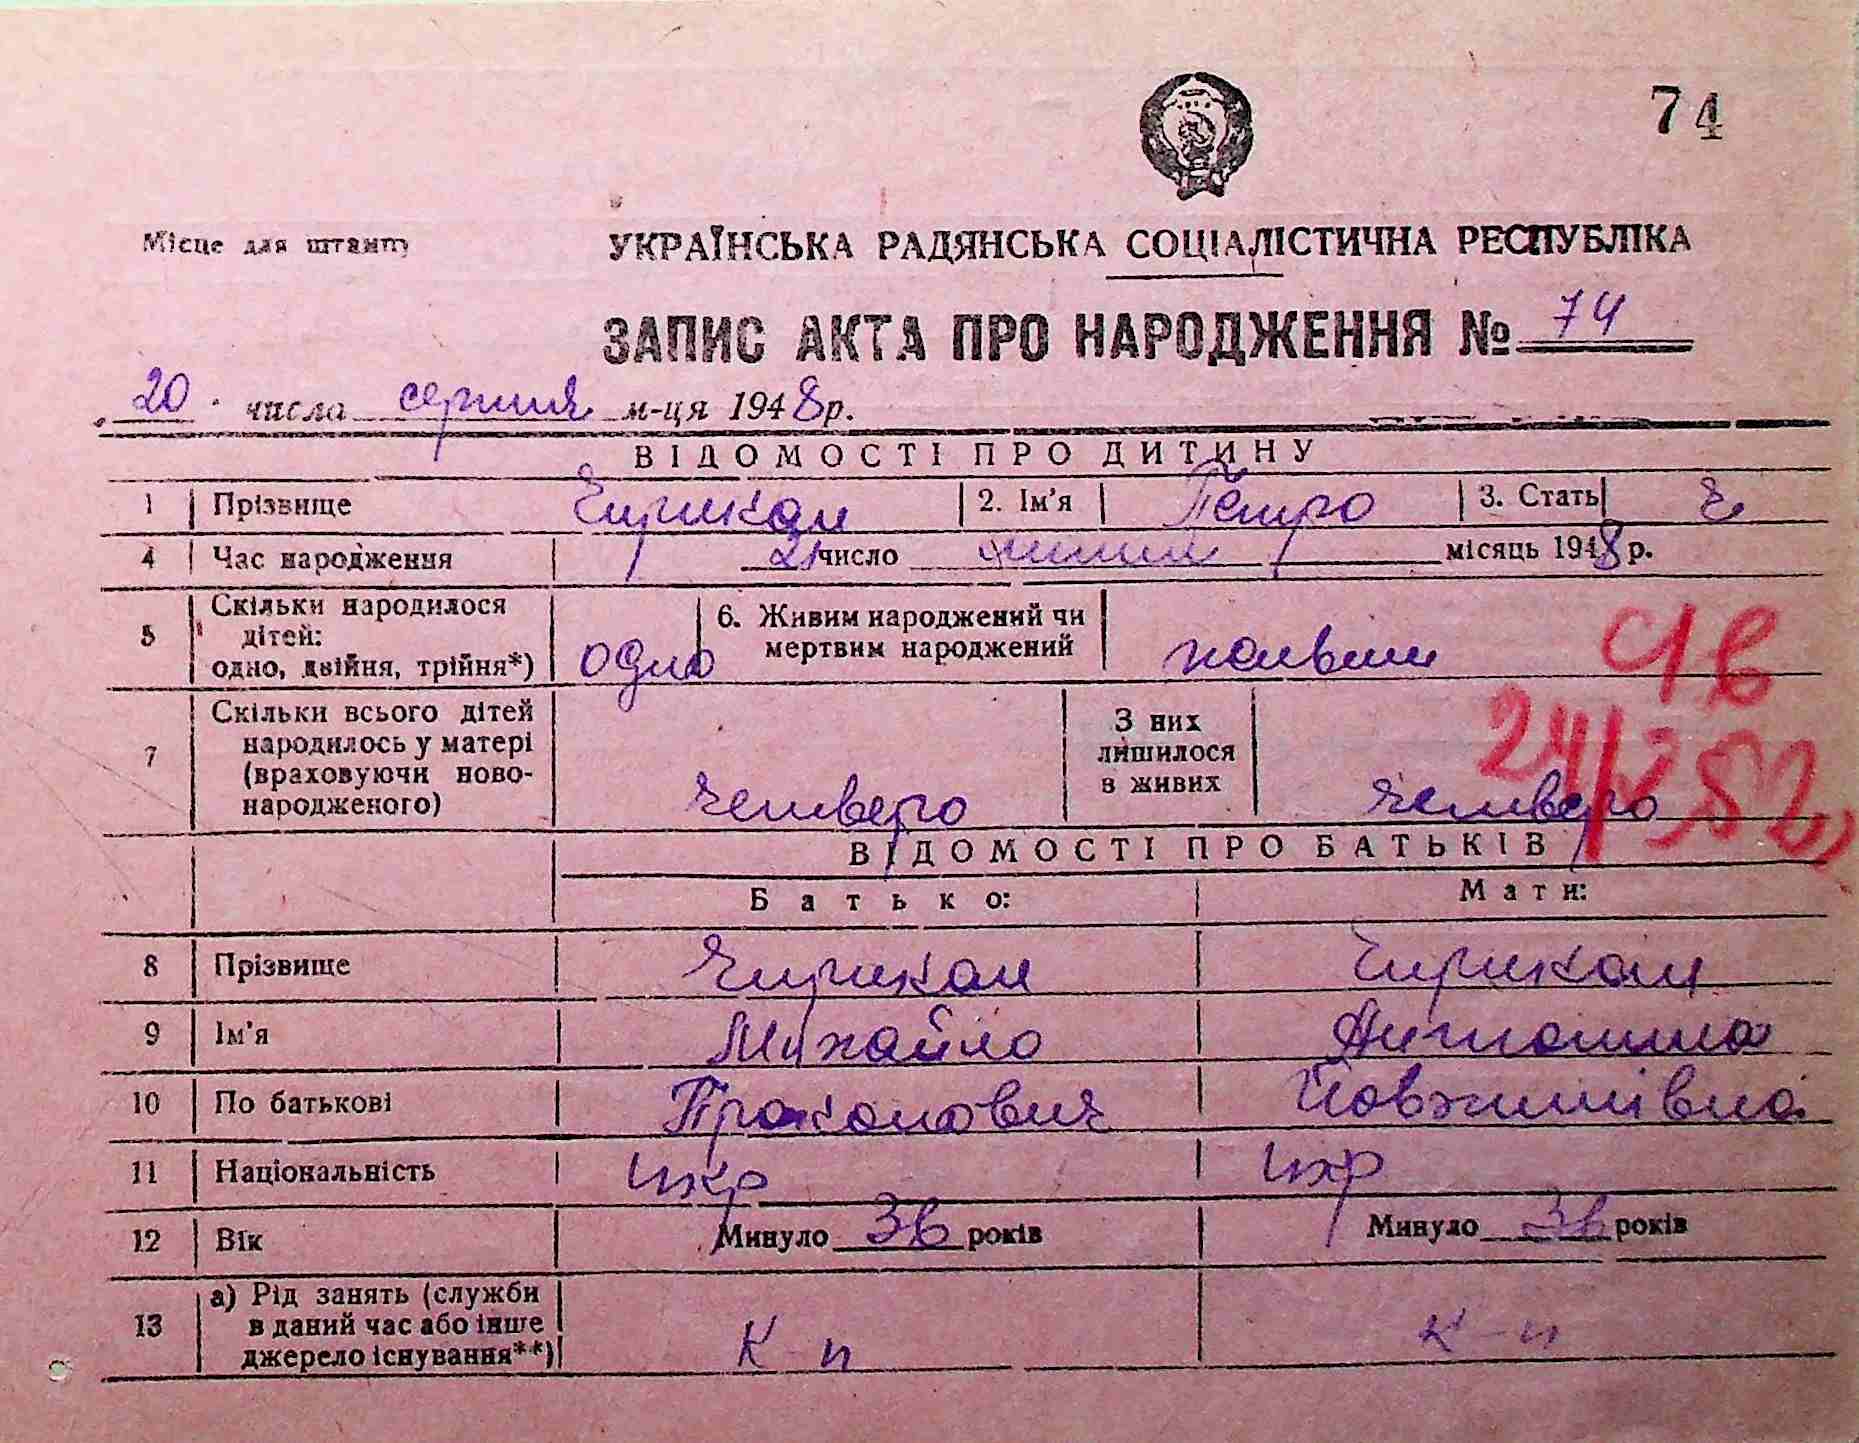 74
Місце для штампу
УКРАЇНСЬКА РАДЯНСЬКА СОЦІАЛІСТИЧНА РЕСПУБЛІКА
ЗАПИС АКТА ПРО НАРОДЖЕННЯ № 74
20 числа серпня м-ця 1948 р.
ВІДОМОСТІ ПРО ДИТИНУ
1 Прізвище Чирикал 2. Ім'я Петро 3. Стать ч
4 Час народження 21 число липня місяць 1948 р.
5 Скільки народилося дітей: одно, двійня, трійня*) одно 6. Живим народжений чи мертвим народжений живим
7 Скільки всього дітей народилось у матері (враховуючи новонародженого) четверо З них лишилося в живих четверо
ВІДОМОСТІ ПРО БАТЬКІВ
Батько: Мати:
8 Прізвище Чирикал Чирикал
9 Ім'я Михайло Антоніна
10 По батькові Прокопович Йовхимівна
11 Національність укр укр
12 Вік Минуло 36 років Минуло 36 років
13 а) Рід занять (служби в даний час або інше джерело існування**) К-п К-п